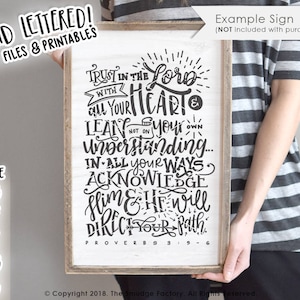 ND LETTERED!
FILES & PRINTABLES
Example Sign
(NOT included with purc
TRUST IN THE Lord
WITH
ALL YOUR HEART &
LEAN NOT ON your OWN
understanding...
IN ALL your WAYS
ACKNOWLEDGE
Him & He will
DIRECT YOUR Path.
PROVERBS 3:5-6
© Copyright 2018. The
Factory. All rights reserved.